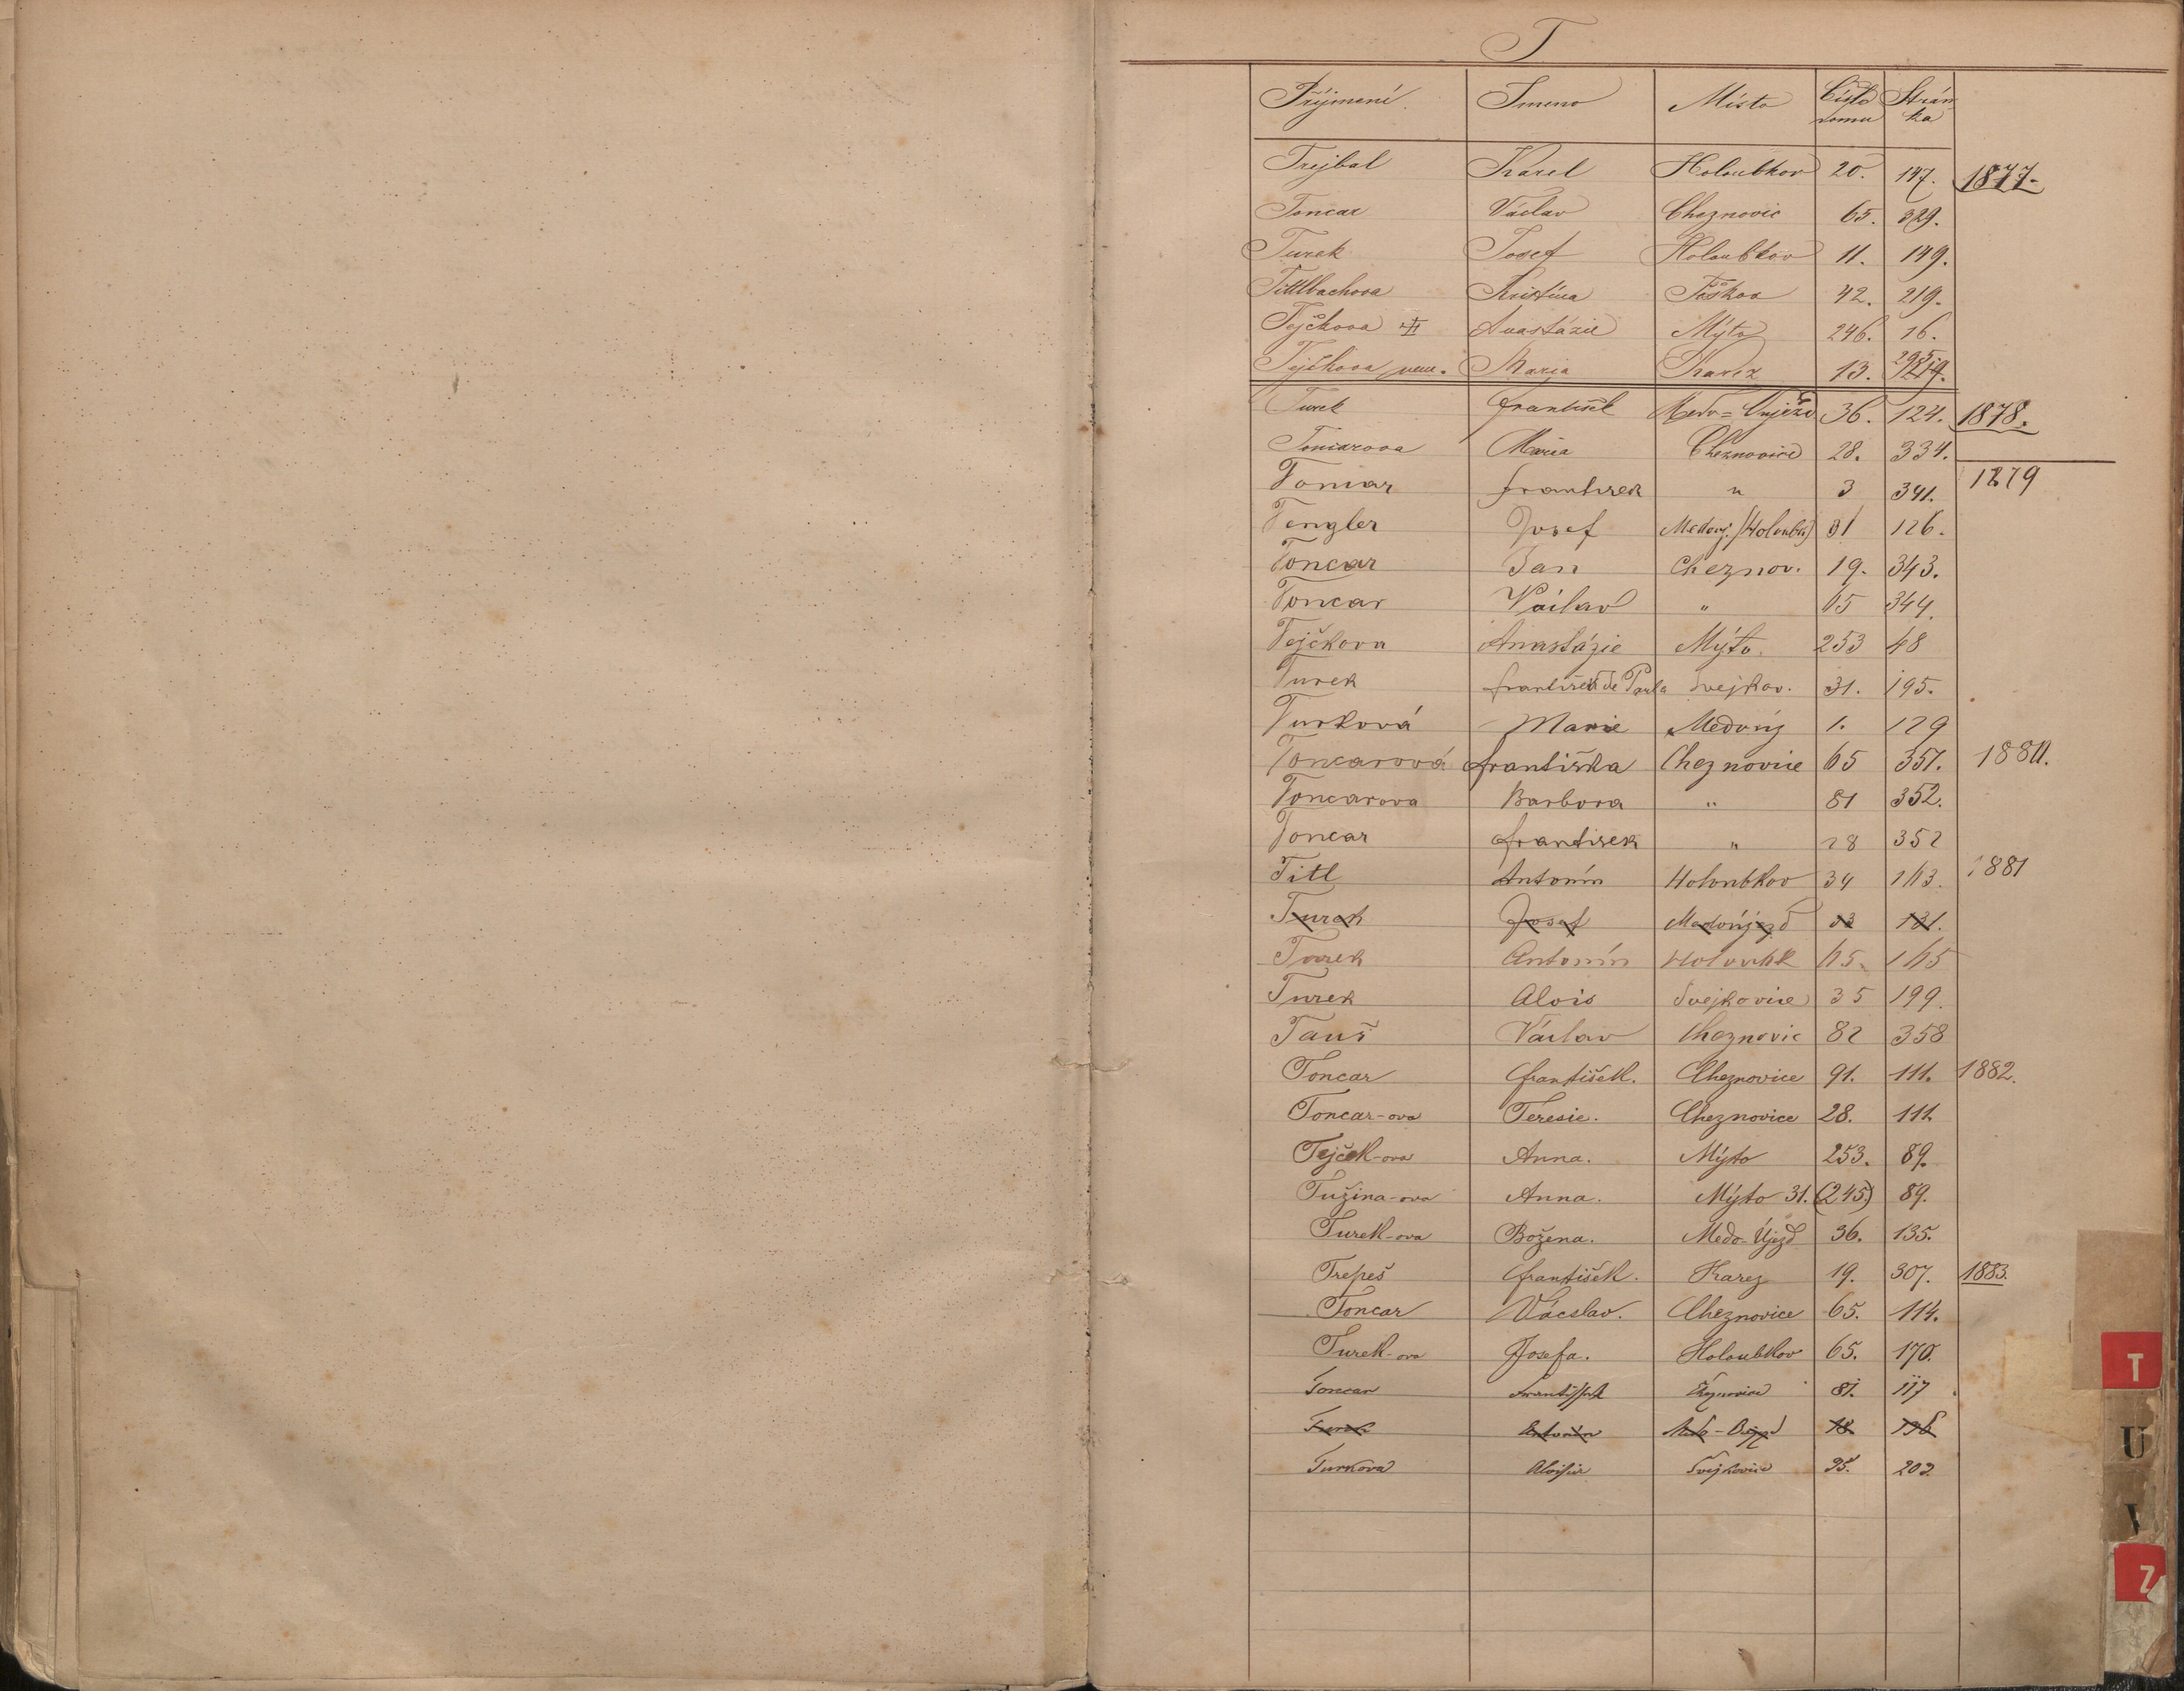 T
Příjmení. Jmeno Místo Číslo domu Stránka
Trejbal Karel Holoubkov 20. 147. 1877.
Toncar Václav Cheznovic 65. 329.
Turek Josef Holoubkov 11. 149.
Tittlbachova Kristina Těškov 42. 219.
Tejčkova Anastázie Mýto 246. 16.
Tejčkova Maria Karez 13. 295
Turek František Medo=Oujezd 36. 124. 1878.
Toncarova Maria Cheznovice 28. 334.
Toncar František " 3 341. 1879
Tengler Josef Medouj. (Holoubk) 31 126.
Toncar Jan Cheznov. 19. 343.
Toncar Václav " 65 344.
Tejčkova Anastázie Mýto. 253 48
Turek František de Paula Svejkov. 31. 195.
Turková Marie Medouj 1. 129
Toncarová Františka Cheznovice 65 351. 1880.
Toncarova Barbora " 81 352.
Toncar František " 28 352
Titl Antonín Holoubkov 34 163. 1881
Turek Josef Medoújezd 131.
Turek Antonín Holoubk 65. 165
Turek Alois Svejkovice 35 199.
Tauš Václav Cheznovic 82 358
Toncar František. Cheznovice 91. 111. 1882.
Toncar-ova Teresie. Cheznovice 28. 111.
Tejček-ova Anna. Mýto 253. 89.
Tužina-ova Anna. Mýto 31. (245) 89.
Turek-ova Božena. Medo-Újezd 36. 135.
Trepeš František. Karez 19. 307. 1883.
Toncar Vácslav. Cheznovice 65. 114.
Turek-ova Josefa. Holoubkov 65. 170.
Toncar František Cheznovice 81. 117
Turek Antonín 18. 136
Turkova Aloisie Svejkovice 35. 202
T
U
V
Z